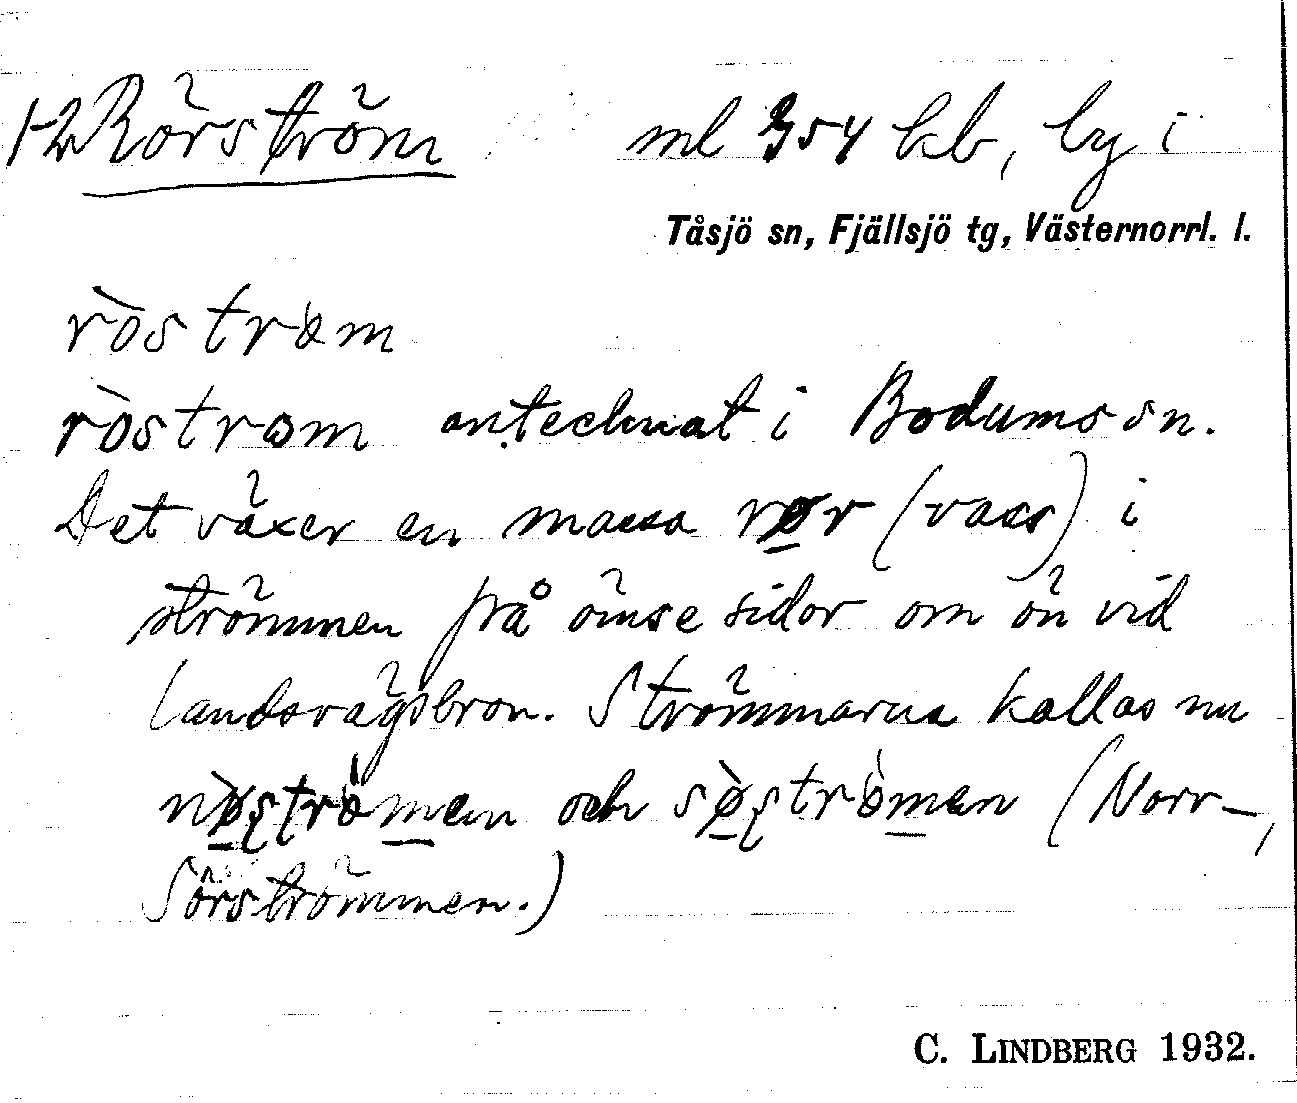 1-2 Rörström ml 954 hb, by i
Tåsjö sn, Fjällsjö tg, Västernorrl. l.
ròstrøm
ròstrøm antecknat i Bodums sn.
Det växer en massa rø̲r (vass) i
strömmen på ömse sidor om ön vid
landsvägsbron. Strömmarna kallas nu
nø̲̀ström̲en och sø̲̀ström̲en (Norr-,
Sörströmmen.)
C. LINDBERG 1932.